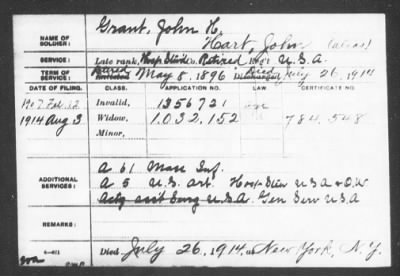 NAME OF SOLDIER: Grant, John H.
Hart, John (alias)
SERVICE: Late rank, Hosp Stew Co. Retired Reg't U.S.A.
TERM OF SERVICE: Retired May 8, 1896 Died July 26, 1914
DATE OF FILING. CLASS. APPLICATION NO. LAW. CERTIFICATE NO.
1907 Feb. 12 Invalid, 1356721
1914 Aug 3 Widow, 1.032.152 784,548
Minor,
ADDITIONAL SERVICES: A 61 Mass Inf.
A 5 U.S. Art. Hosp Stew U S A
Actg asst Surg U.S.A. Gen Serv U S A
REMARKS:
Died July 26, 1914, at New York, N.Y.